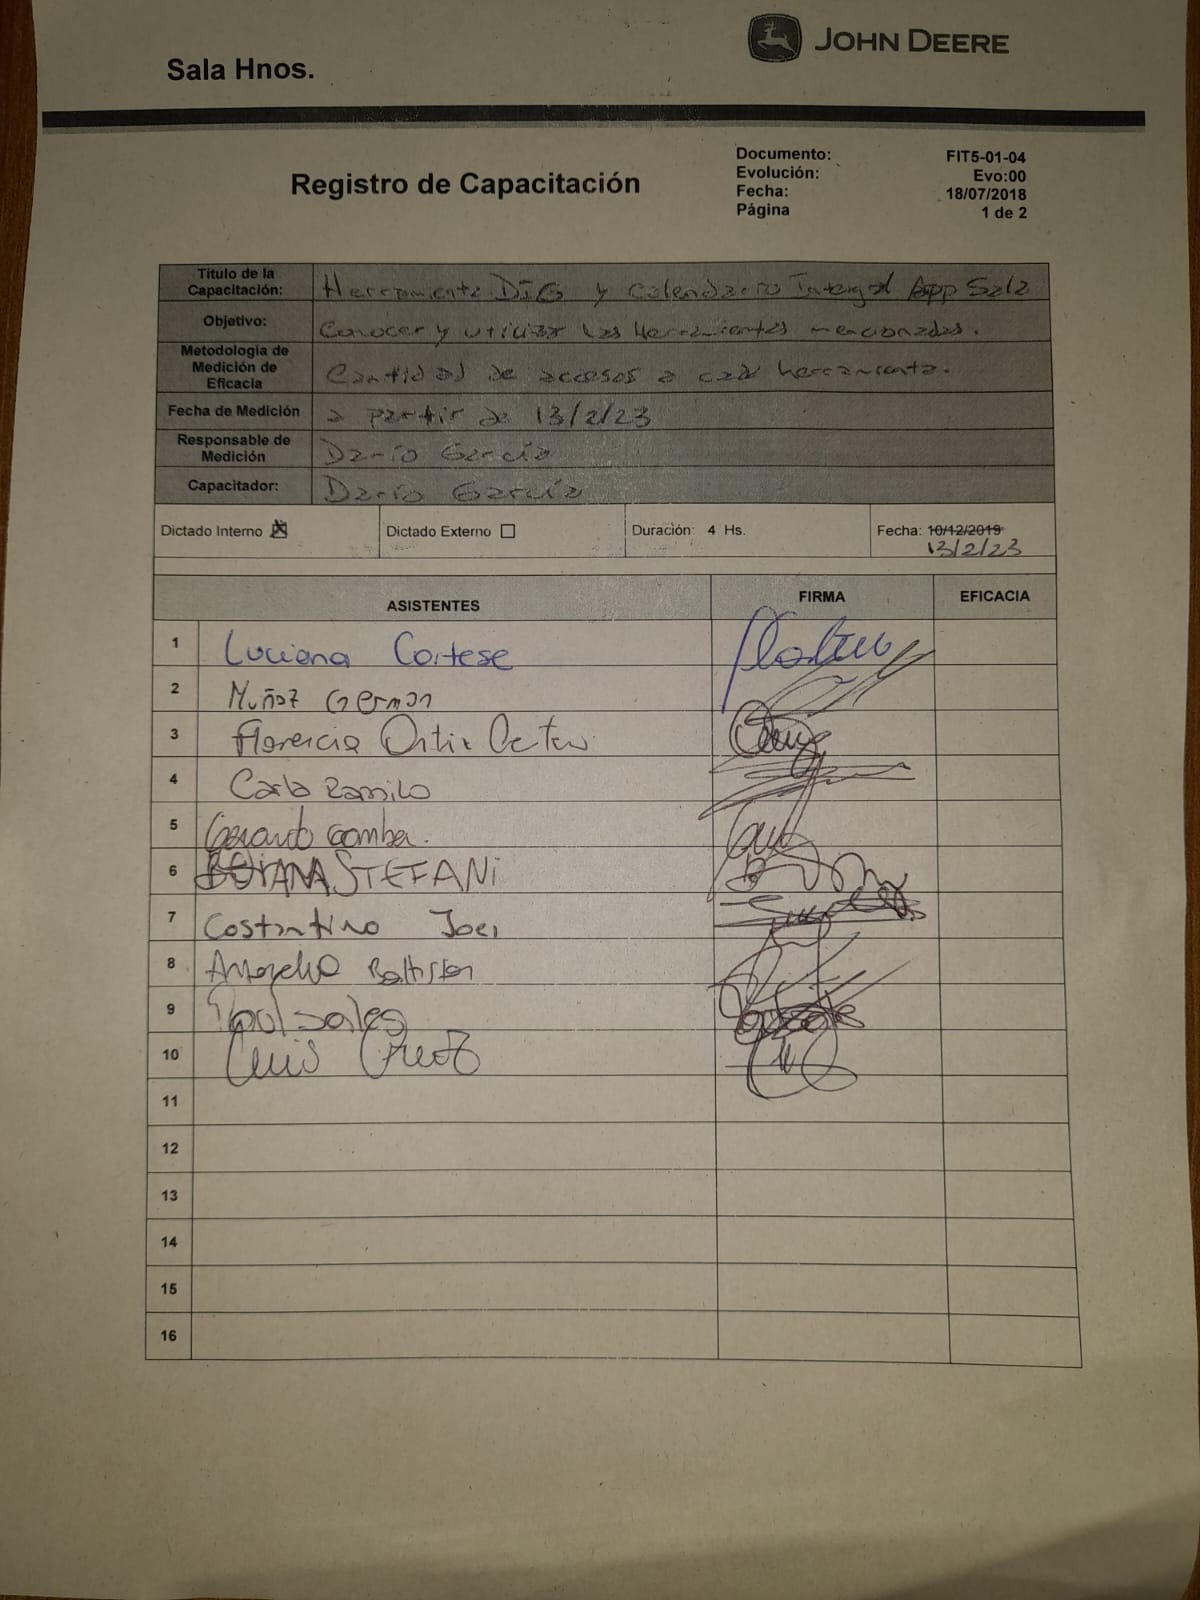 Sala Hnos.
JOHN DEERE
Registro de Capacitación
Documento: FIT5-01-04
Evolución: Evo:00
Fecha: 18/07/2018
Página 1 de 2
Título de la Capacitación: Herramienta DIG y Calendario Integral App Sala
Objetivo: Conocer y utilizar las herramientas mencionadas.
Metodología de Medición de Eficacia Cantidad de accesos a cada herramienta.
Fecha de Medición a partir de 13/2/23
Responsable de Medición Darío García
Capacitador: Darío García
Dictado Interno ☒ Dictado Externo ☐ Duración: 4 Hs. Fecha: 10/12/2019
13/2/23
ASISTENTES FIRMA EFICACIA
1 Luciana Cortese
2 Muñoz German
3 Florencia Ortiz
4 Carla
5 Gerardo Gamba.
6 STEFANI
7 Costantino Joel
8
9
10 Luis Cruz
11
12
13
14
15
16